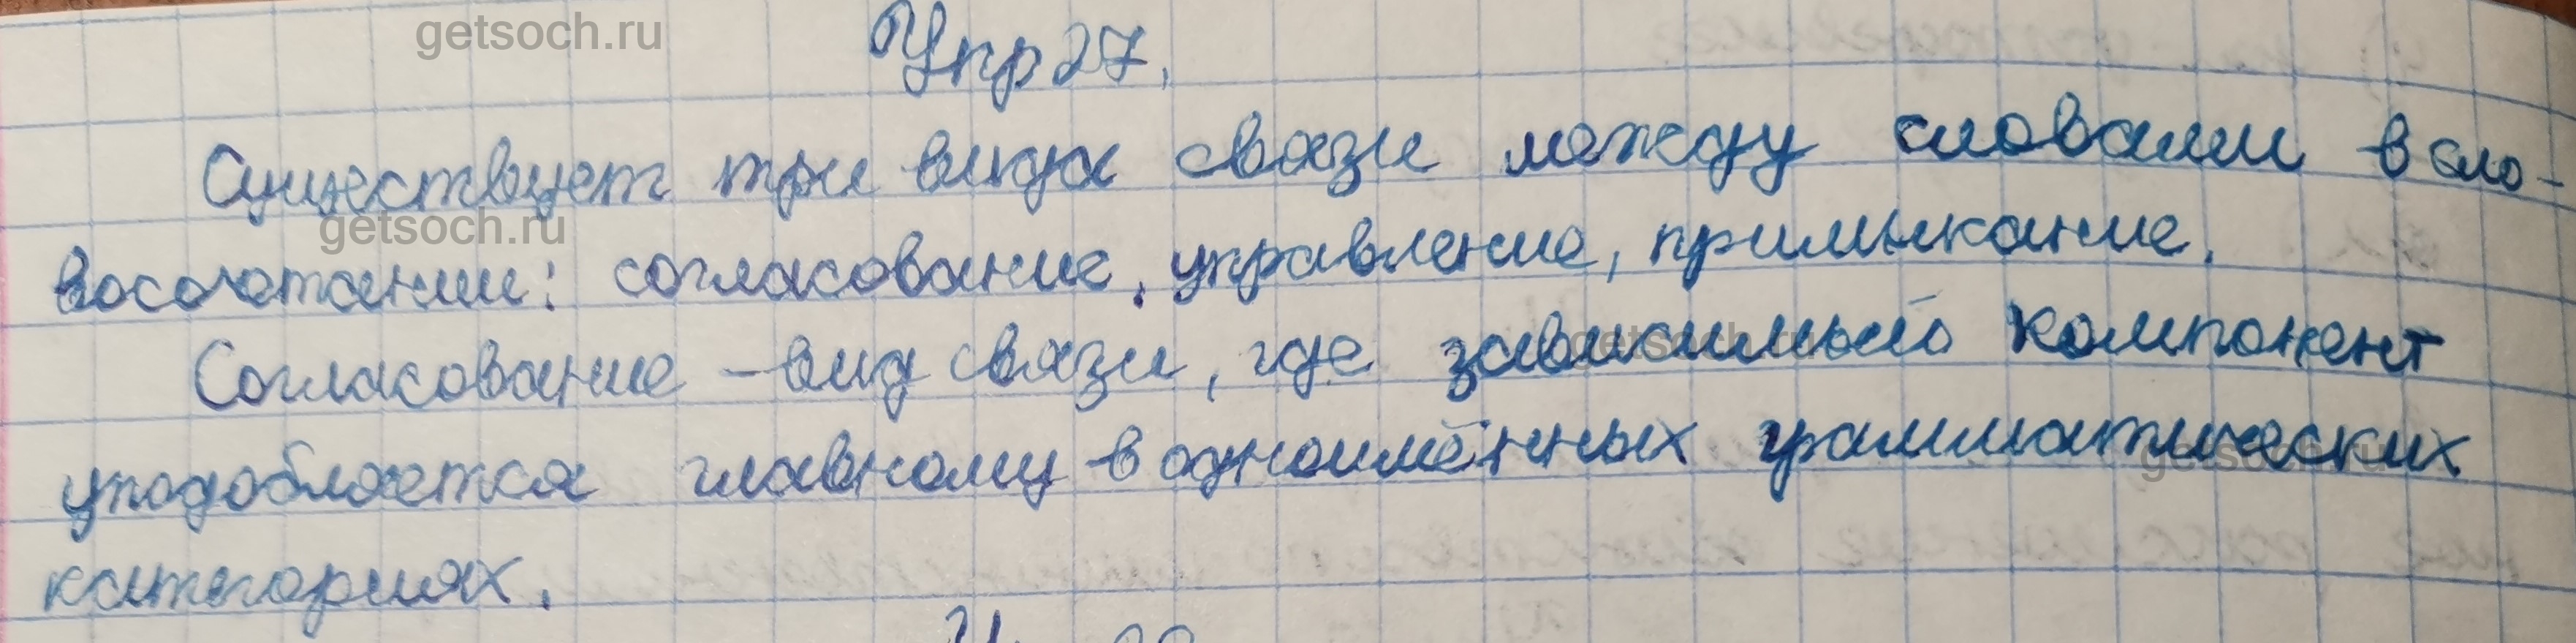 getsoch.ru
Упр 27.
Существует три вида связи между словами в сло-
getsoch.ru
восочетании: согласование, управление, примыкание.
getsoch.ru
Согласование – вид связи, где зависимый компонент
уподобляется главному в одноимённых грамматических
getsoch.ru
категориях.